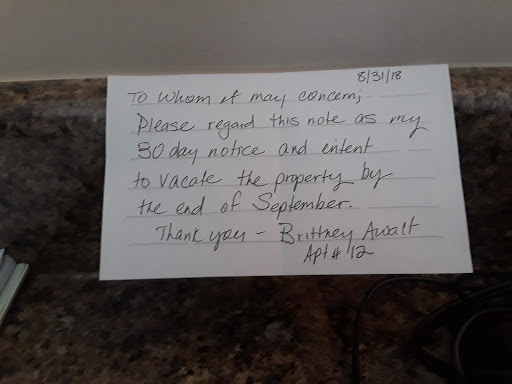 8/31/18
To whom it may concern;
Please regard this note as my
30 day notice and entent
to vacate the property by
the end of September.
Thank you - Brittney Awalt
Apt # 12